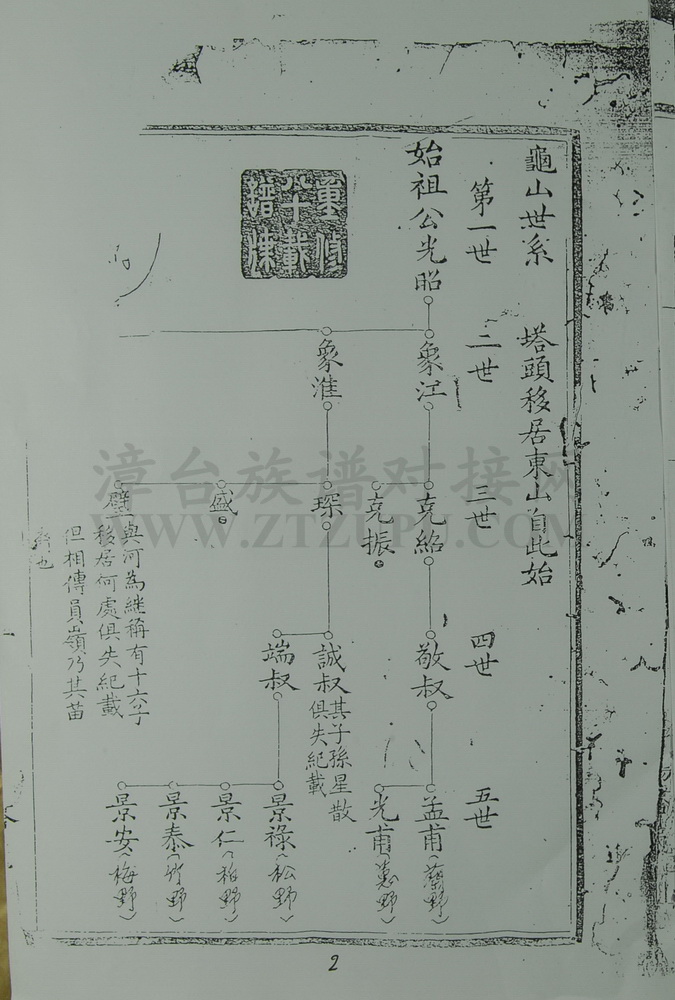 龜山世系 塔頭移居東山自此始
第一世 二世 三世 四世 五世
始祖公光昭
象江
象淮
克紹
克振
琛
盛
璧
與河為継稱有十六子
移居何處俱失紀載
但相傳員嶺乃其苗
裔也
敬叔
誠叔
其子孫星散
俱失紀載
端叔
孟甫(蘭野)
光甫(蕙野)
景祿(松野)
景仁(栢野)
景泰(竹野)
景安(梅野)
重修
八十載
譜牒
漳台族谱对接网
WWW.ZTZUPU.COM
2